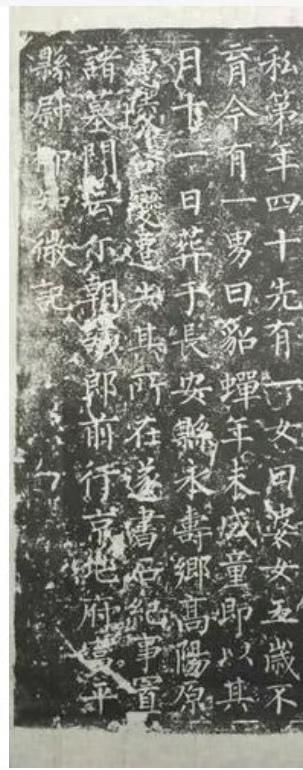 私第年四十先有一女曰婆女五歲不
育今有一男曰貂蟬年未成童即以其
月十一日葬于長安縣永壽鄉高陽原
慮陵谷變遷失其所在遂書石紀事置
諸墓門云尔朝議郎前行京兆府富平
縣尉柳知微記